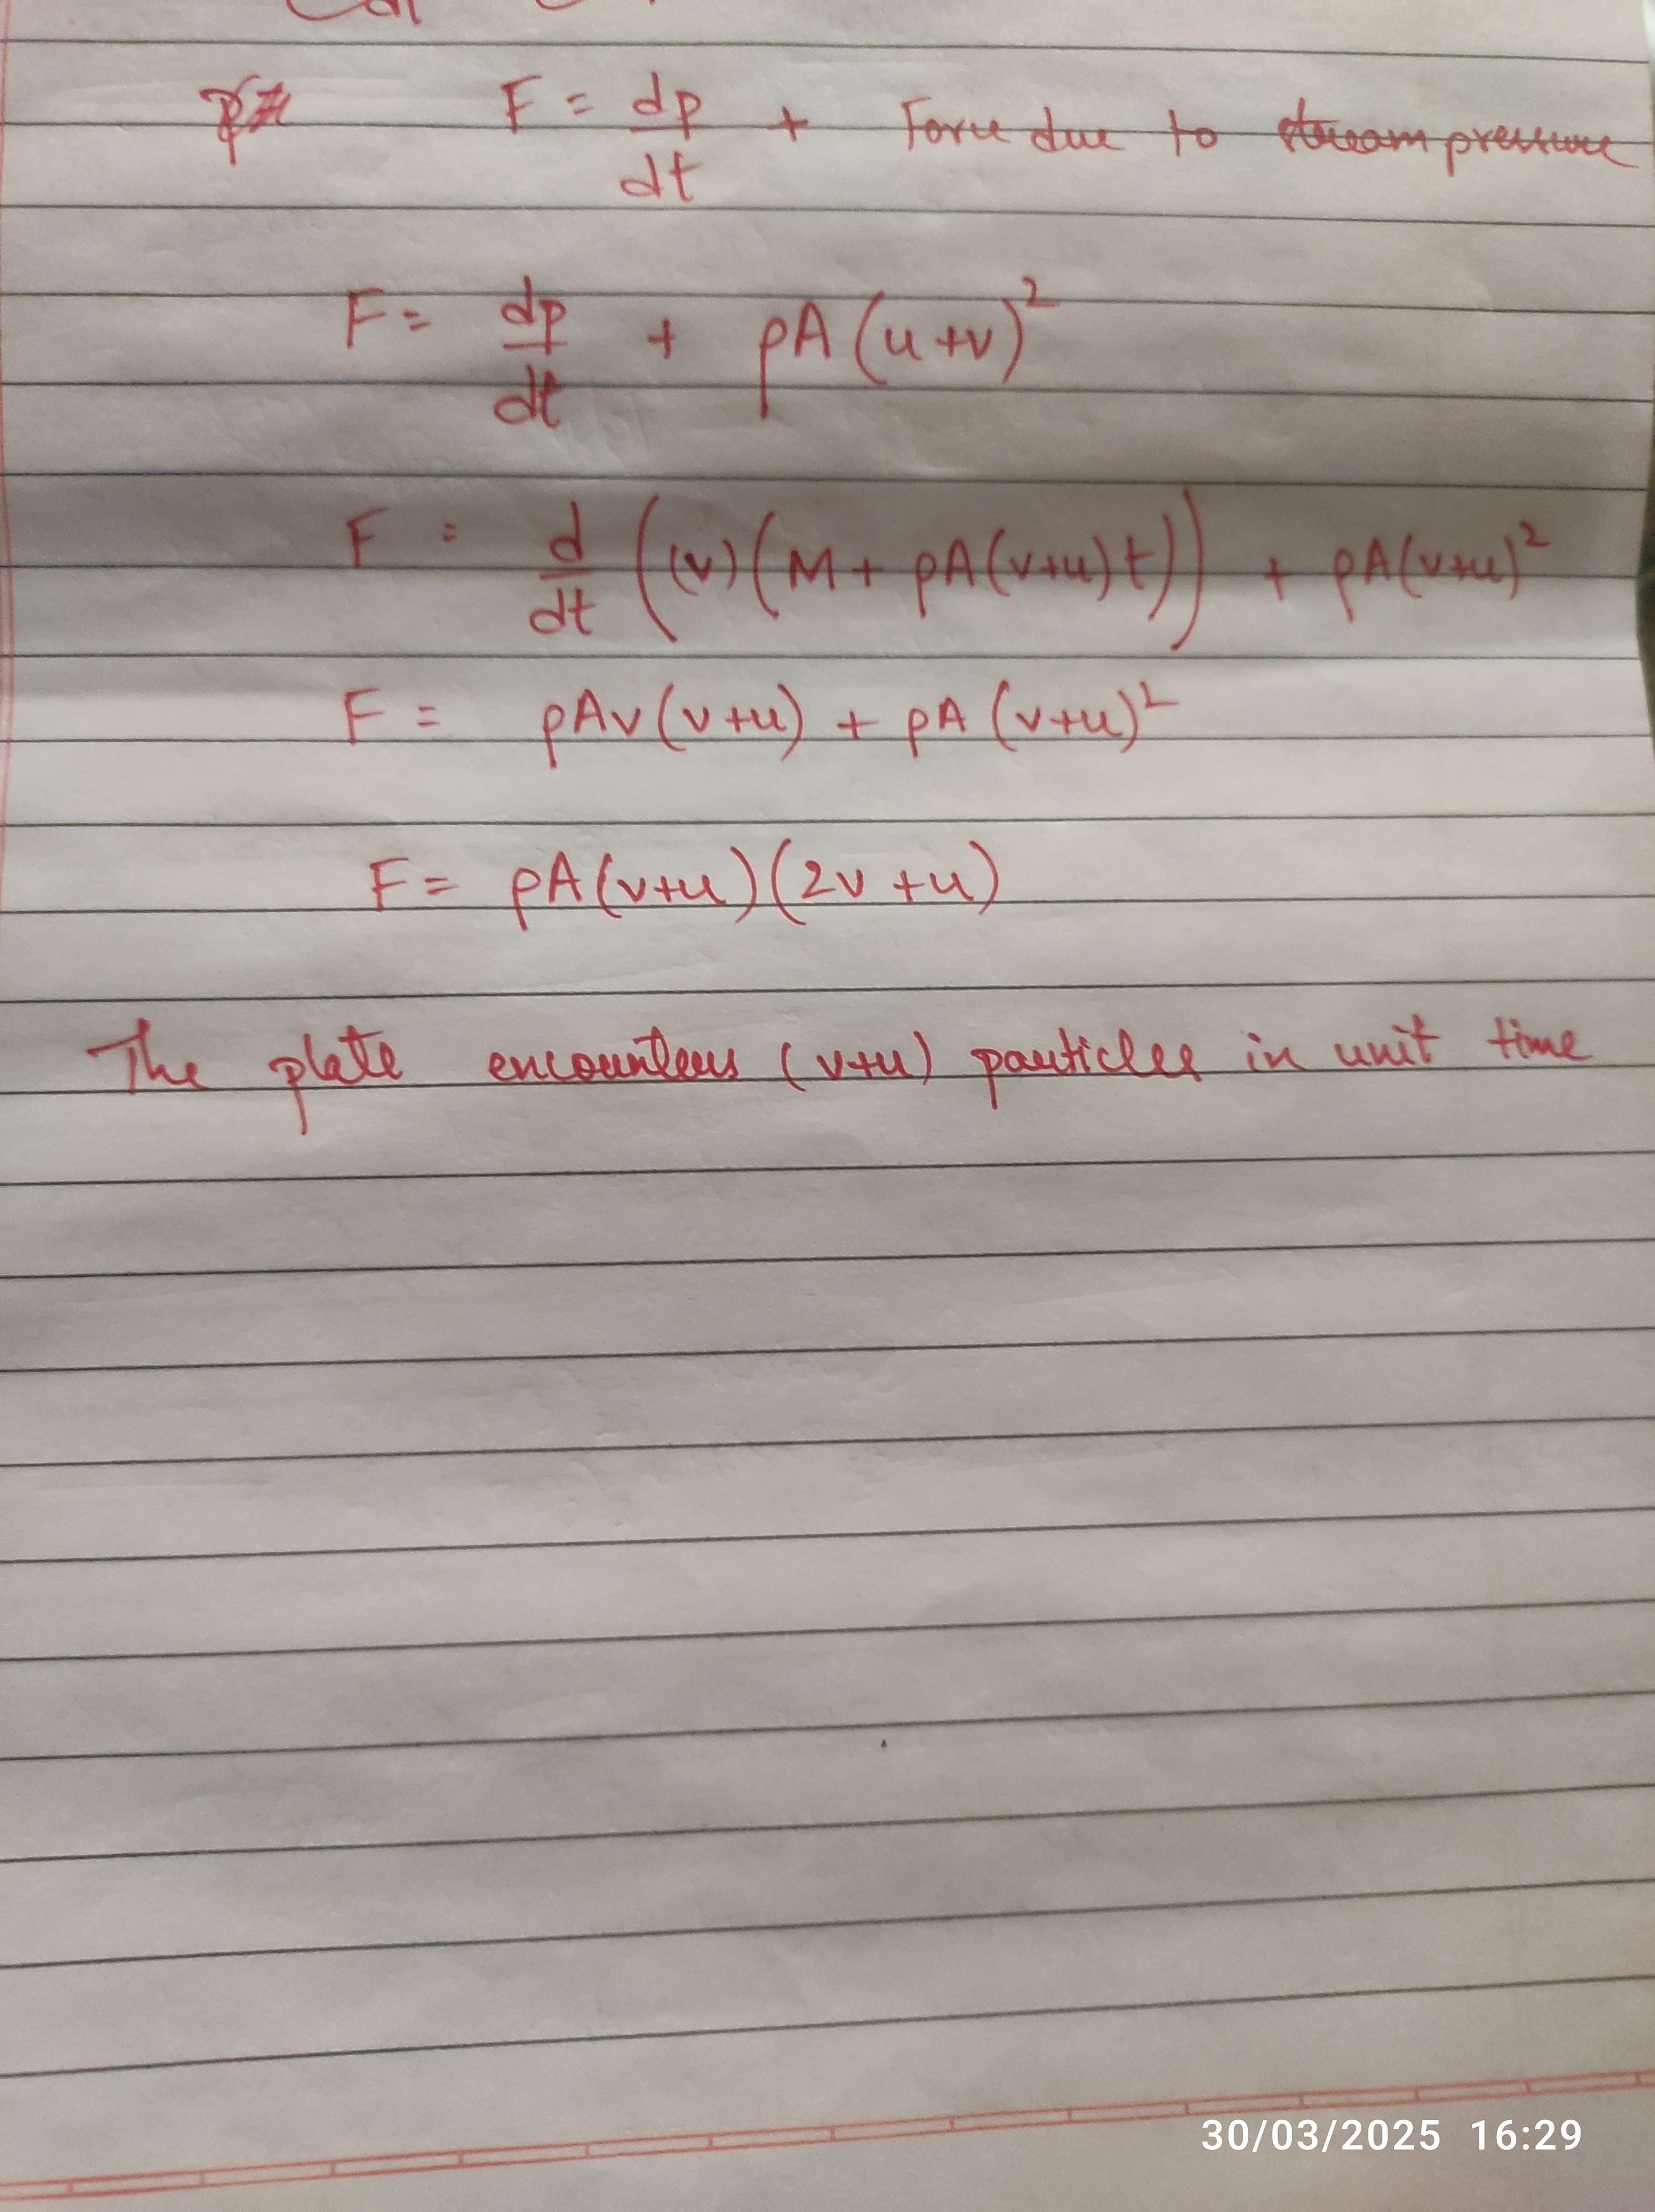 F = dp/dt + Force due to stream pressure
F = dp/dt + ρA(u+v)²
F = d/dt ((v)(M + ρA(v+u)t)) + ρA(v+u)²
F = ρAv(v+u) + ρA(v+u)²
F = ρA(v+u)(2v+u)
The plate encounters (v+u) particles in unit time
30/03/2025 16:29